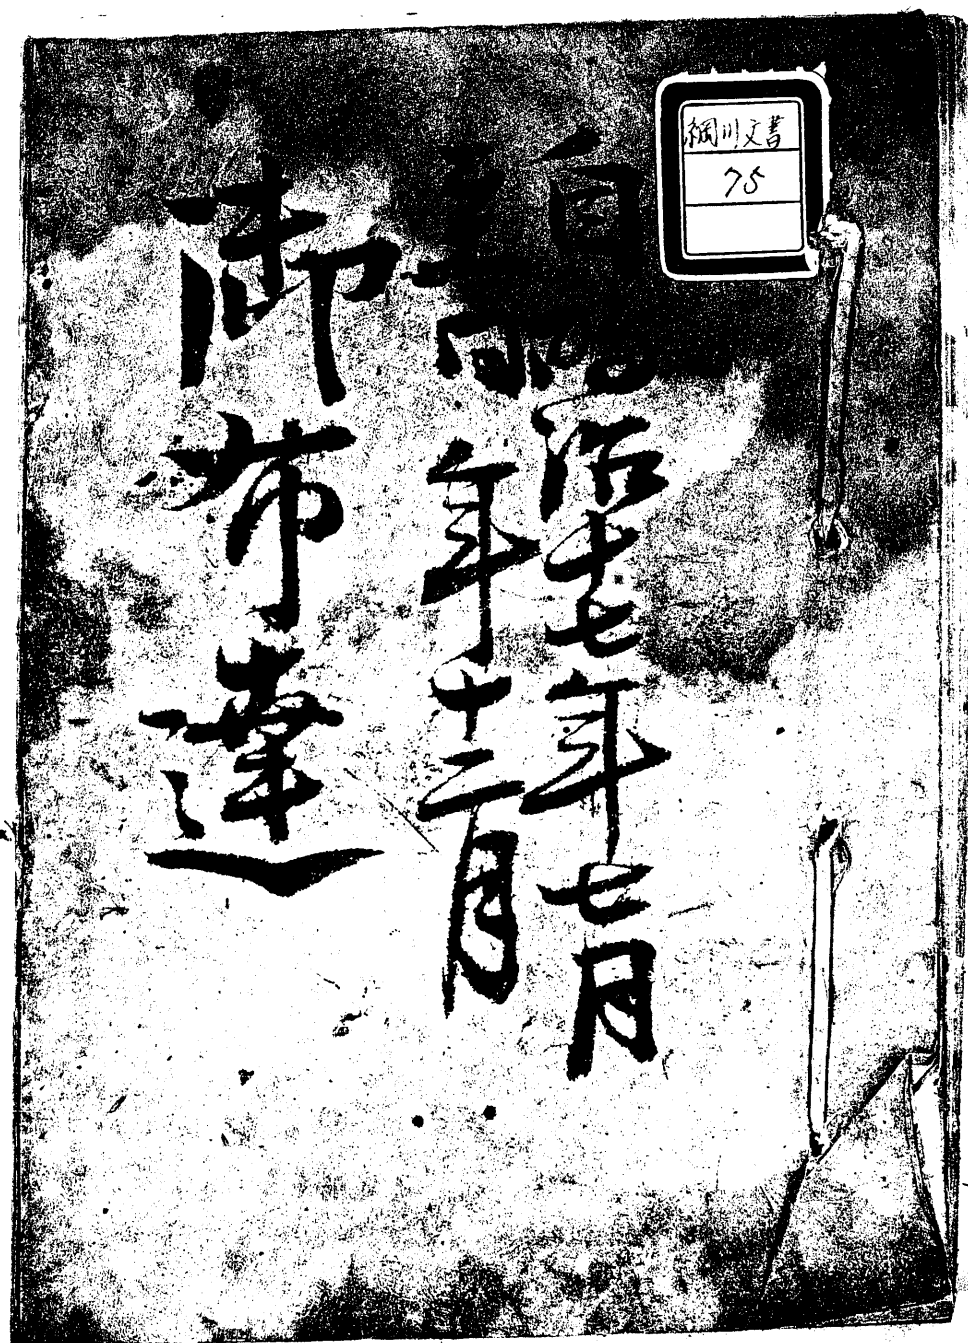 綱川文書
75
自明治十七年七月
至同年十二月
御布達